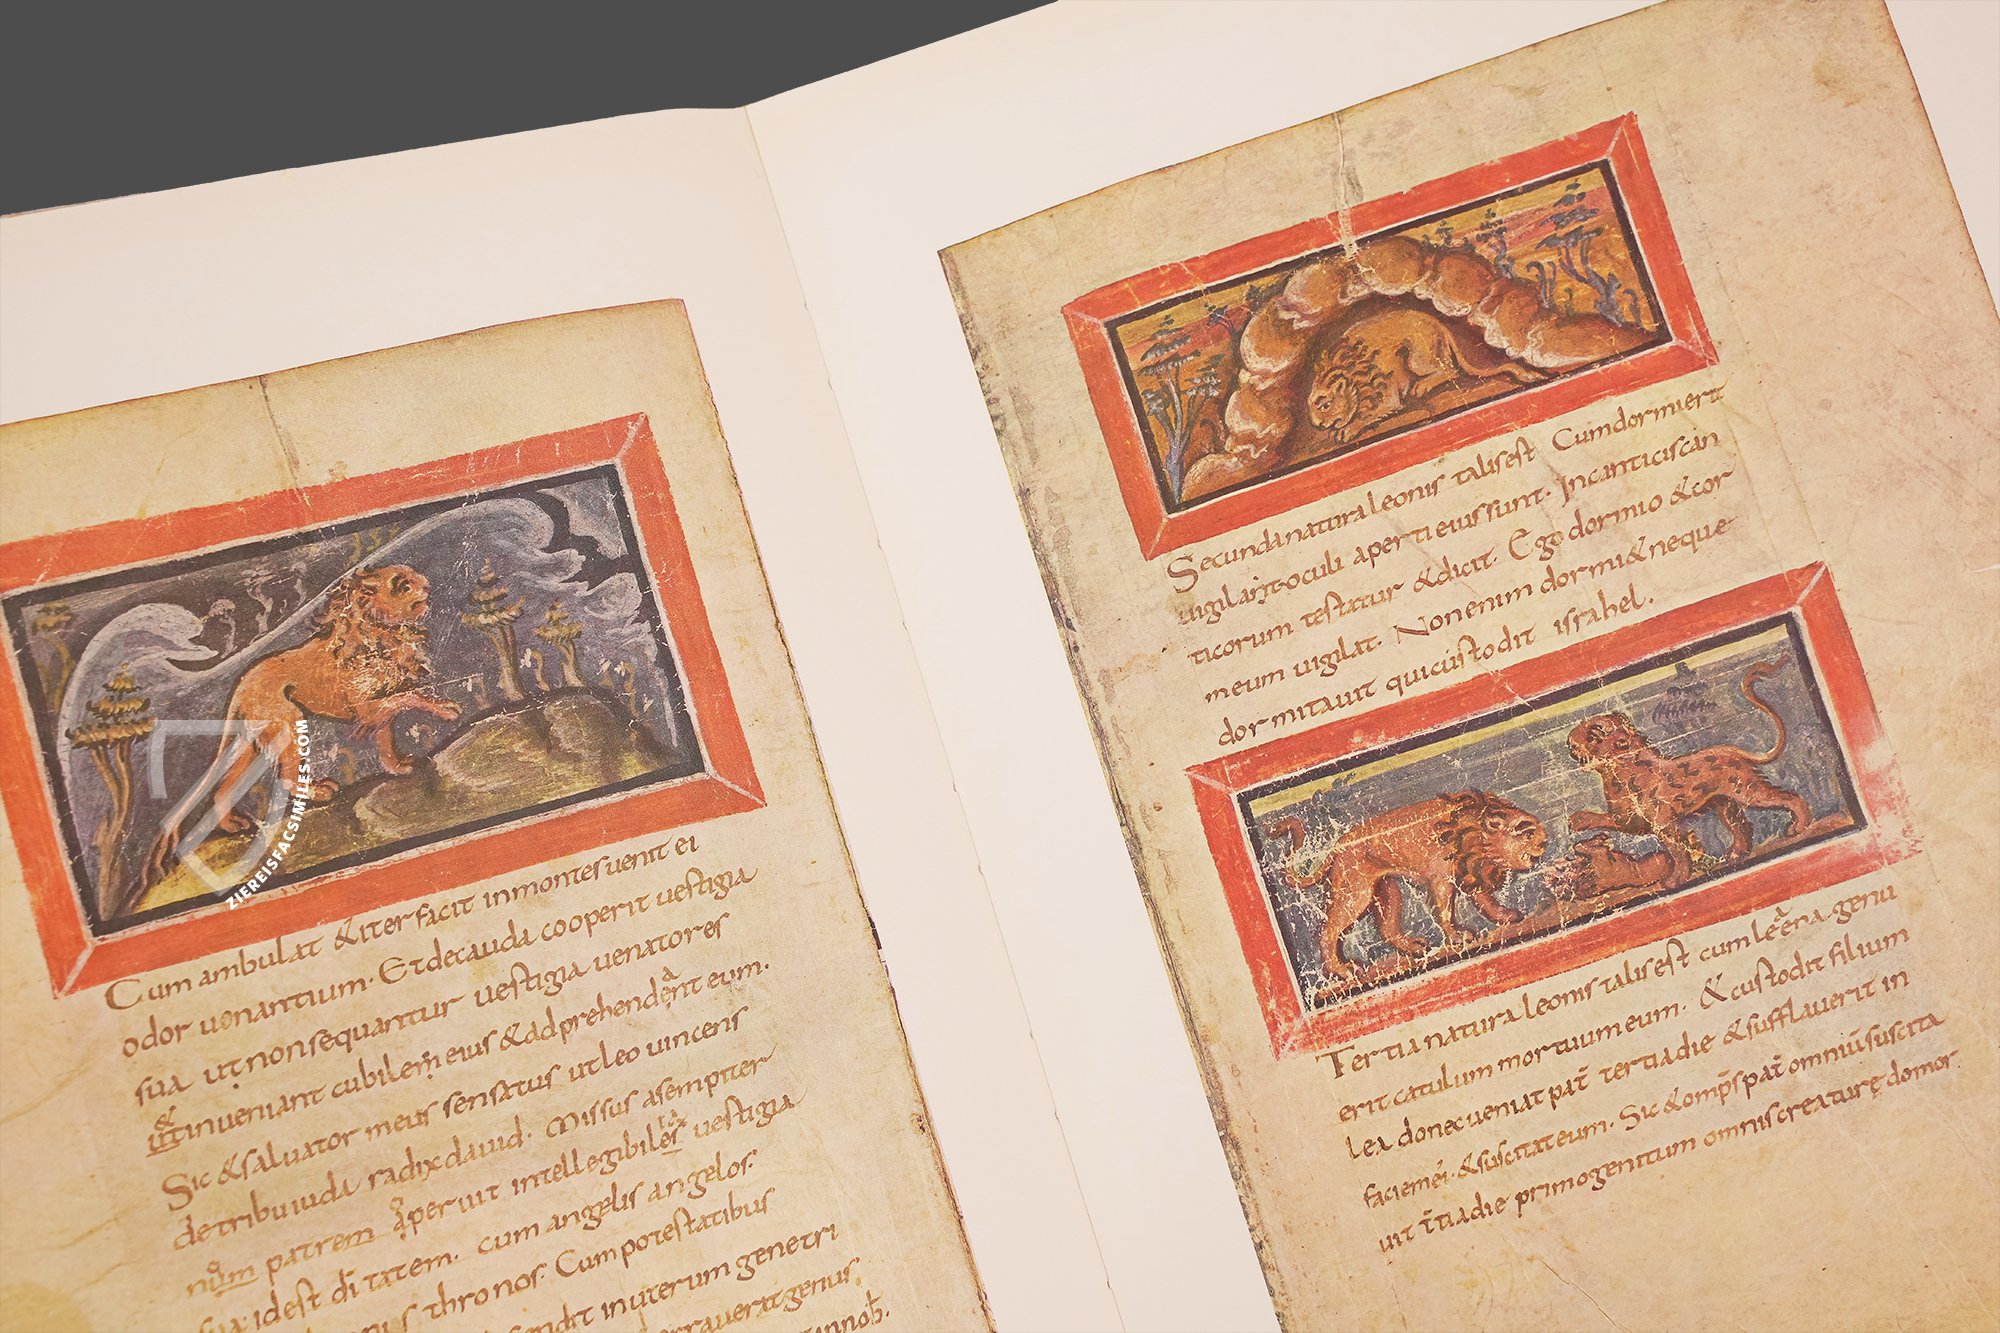 Cum ambulat & iter facit in montes uenit ei
odor uenantium. Et de cauda cooperit uestigia
sua ut non sequantur uestigia uenatores
& inueniant cubilem eius & adprehendant eum.
Sic & saluator meus sensatus ut leo uincens
de tribu iuda radix dauid. Missus a sempiter
num patrem aperuit intellegibiles uestigia
sua idest ditatem. cum angelis angelos.
thronos. Cum potestatibus
in uterum genetri
genus

Secunda natura leonis talis est Cum dormierit
uigilant oculi aperti eius sunt. In canticis can
ticorum testatur & dicit. Ego dormio & cor
meum uigilat. Non enim dormi& neque
dormitauit qui custodit israhel.
Tertia natura leonis talis est cum leena genu
erit catulum mortuum eum. & custodit filium
lea donec ueniat pat tertia die & sufflauerit in
faciem ei. & suscitat eum. Sic & omps pat omniū suscita
uit tia die primogenitum omnis creaturę domor.
ZIEREISFACSIMILES.COM